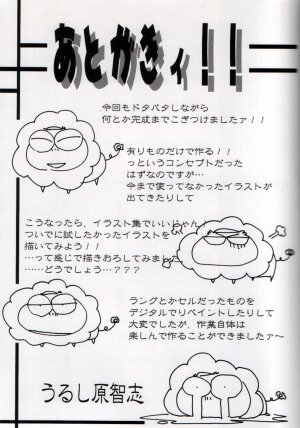 あとがきィ!!
今回もドタバタしながら
何とか完成までこぎつけましたァ!!
有りものだけで作る!!
っというコンセプトだった
はずなのですが…
今まで使ってなかったイラストが
出てきたりして
こうなったら、イラスト集でいいじゃん!
ついでに試したかったイラストを
描いてみよう!!
…って感じで描きおろしてみました
……どうでしょう…???
ラングとかセルだったものを
デジタルでリペイントしたりして
大変でしたが、作業自体は
楽しんで作ることができましたァ〜
うるし原智志